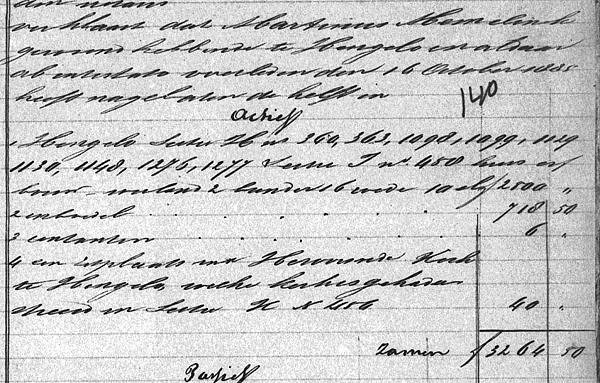 verklaart dat Martinus Memelink
gewoond hebbende te Hengelo en aldaar
ab intestato overleden den 16 October 1885
heeft nagelaten de helft in
140
Actief
1 Hengelo Sectie H nos 360, 363, 1098, 1099, 1129
1130, 1148, 1276, 1277 Sectie I no 450 huis erf
bouw- weiland 2 bunder 16 roede 10 el f 2500 "
2 inboedel 718 50
3 contanten 6 "
4 een zitplaats in de Hervormde Kerk
te Hengelo, welke kerk is gekadas
treerd in Sectie K N 456 40 "
Zamen f 3264 50
Passief